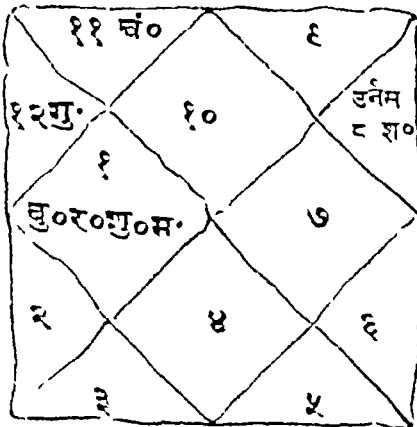 ११ चं०
९
१२गु.
१०
८ श०
१
बु०र०शु०म.
७
२
४
६
३
५